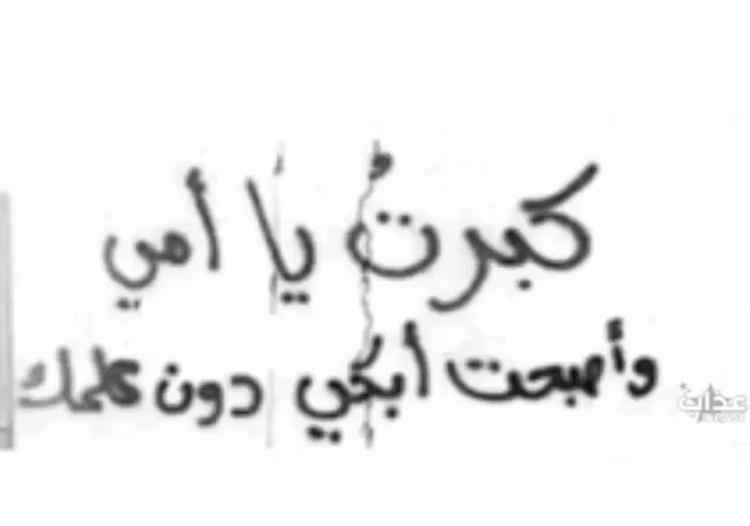 كبرتُ يا أمي
وأصبحت أبكي دون علمك